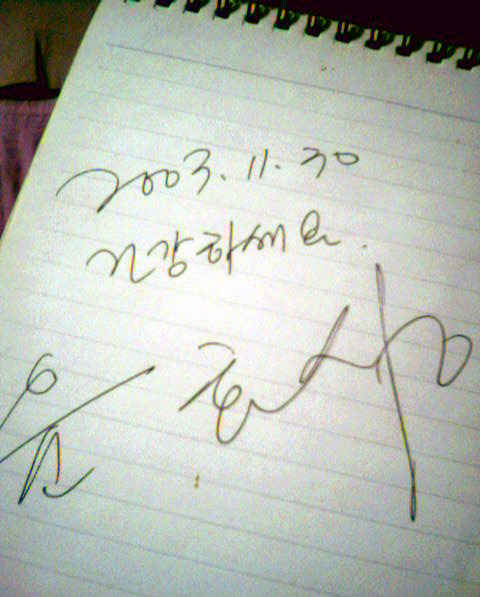 2003. 11. 30
건강하세요.
윤